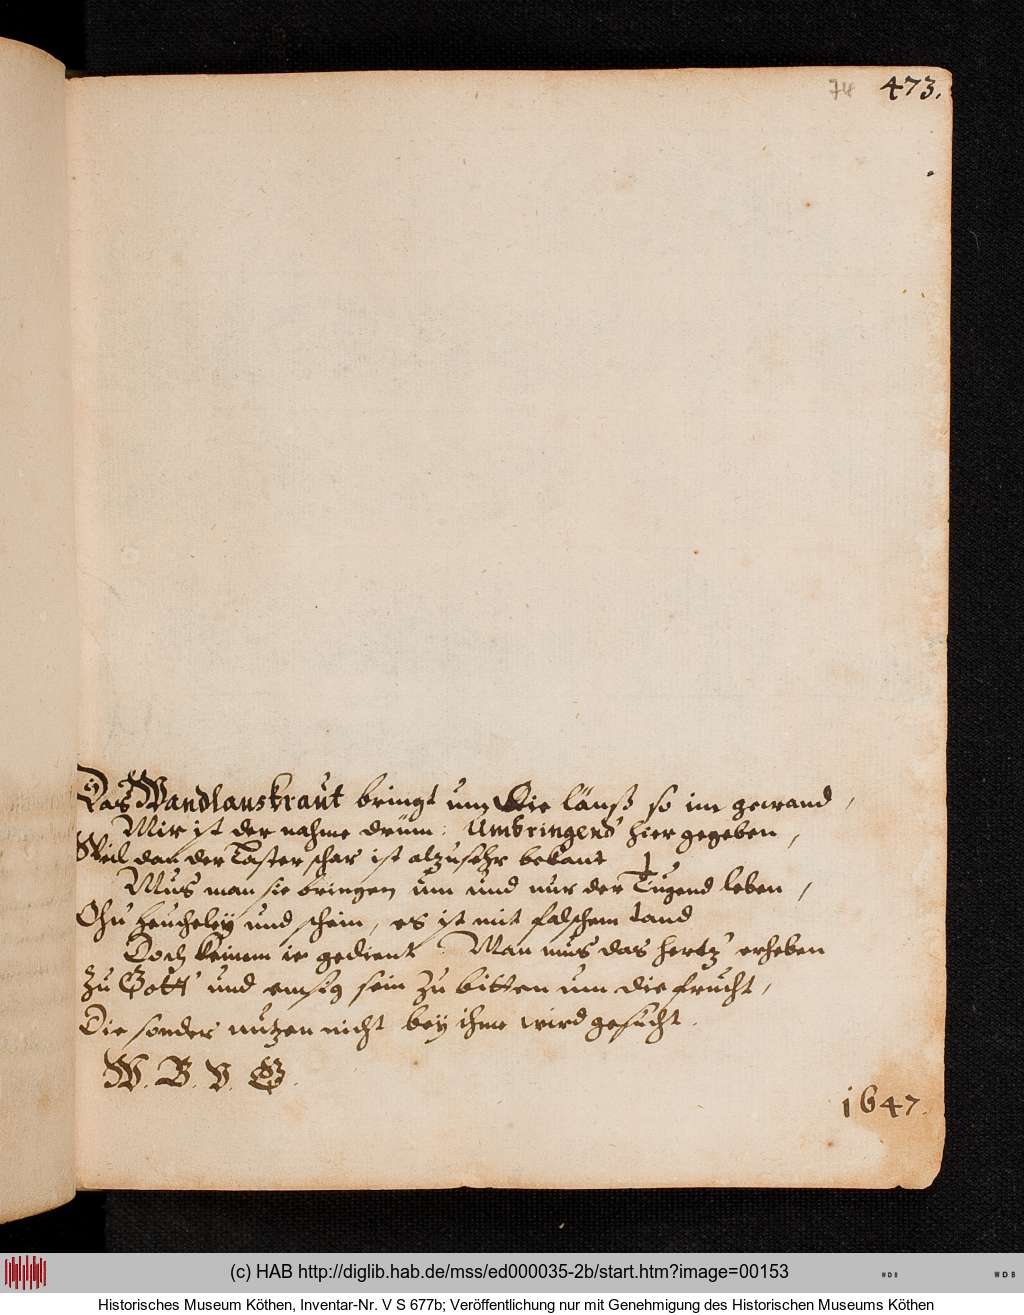 74 473.
Das Wandlauskraut bringt um die läuß so im gewand,
Mir ist der nahme drüm: Umbringend' hier gegeben,
Weil dan der Laster schar ist alzusehr bekant
Mus man sie bringen um und nur der Tugend leben,
Ohn heucheley und schein, es ist mit falschem tand
Doch keinem ie gedient. Man mus das hertz' erheben
Zu Gott' und emsig sein zu bitten um die frucht,
Die sonder nutzen nicht bey ihme wird gesucht.
W. B. V. G.
1647.
(c) HAB http://diglib.hab.de/mss/ed000035-2b/start.htm?image=00153
Historisches Museum Köthen, Inventar-Nr. V S 677b; Veröffentlichung nur mit Genehmigung des Historischen Museums Köthen